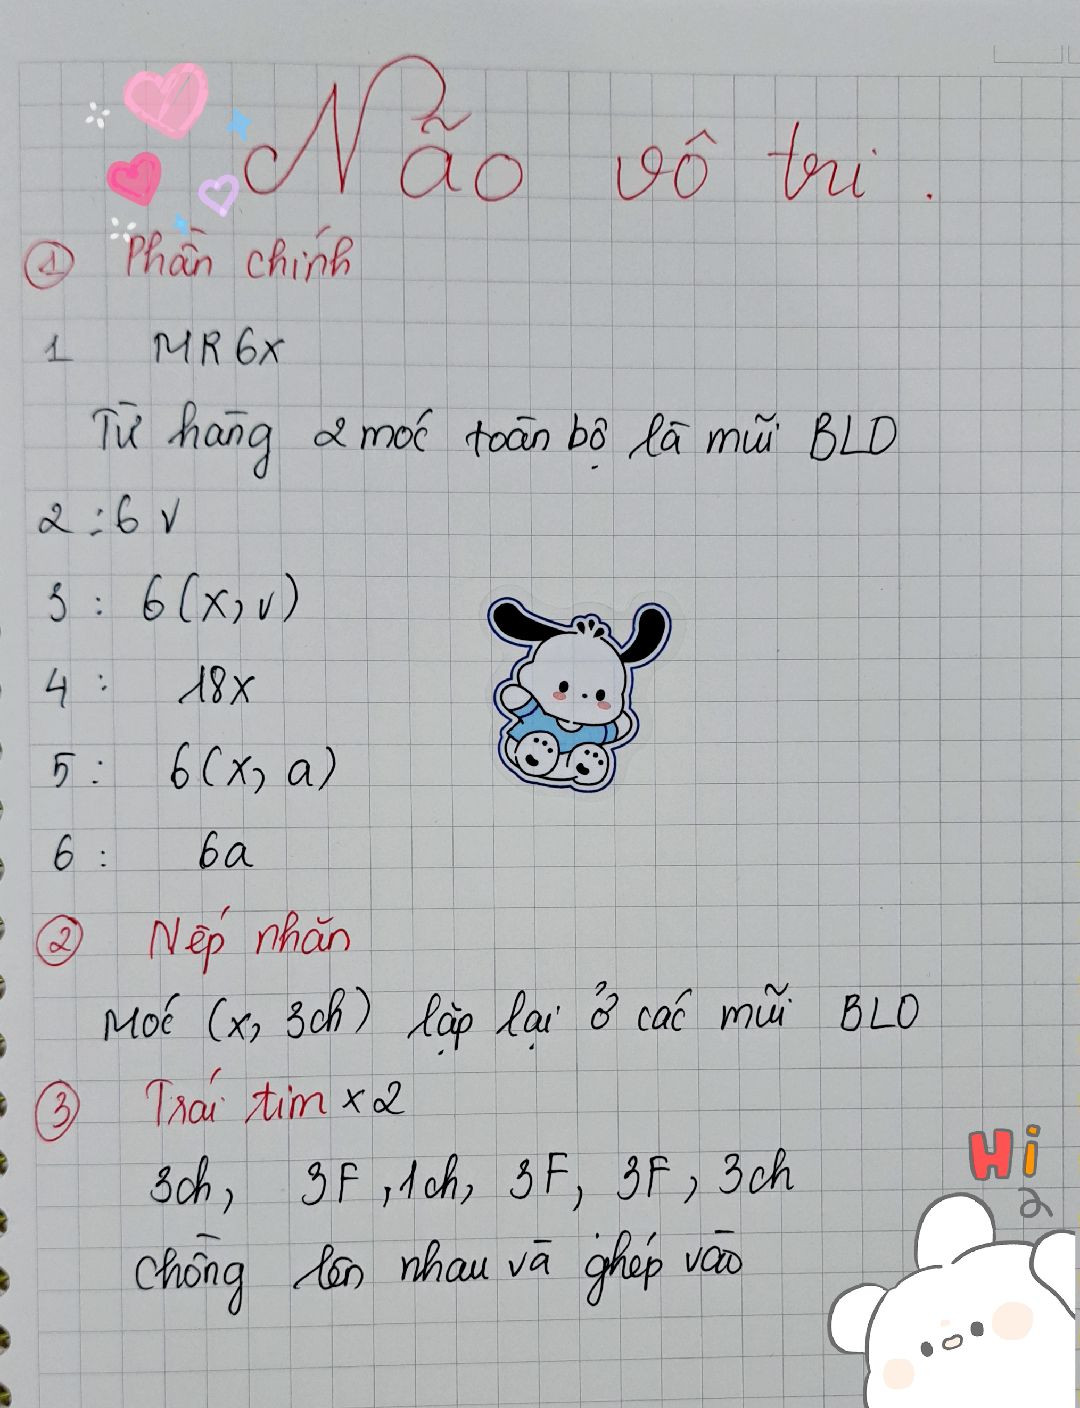 Não vô tri.
① Phần chính
1 MR6x
Từ hàng 2 móc toàn bộ là mũi BLO
2 : 6 v
3 : 6(x, v)
4 : 18x
5 : 6(x, a)
6 : 6a
② Nếp nhăn
Móc (x, 3ch) lặp lại ở các mũi BLO
③ Trái tim x2
3ch, 3F, 1ch, 3F, 3F, 3ch
chồng lên nhau và ghép vào
Hi